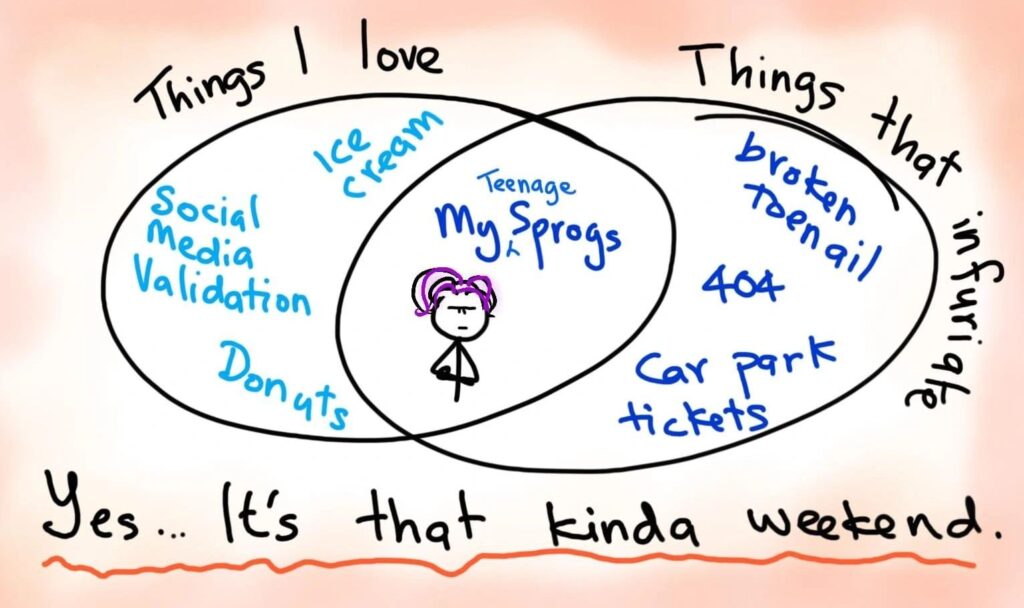 Things I love
Things that infuriate
Ice
cream
Social
media
Validation
Donuts
Teenage
My Sprogs
broken
toenail
404
Car park
tickets
Yes... It's that kinda weekend.